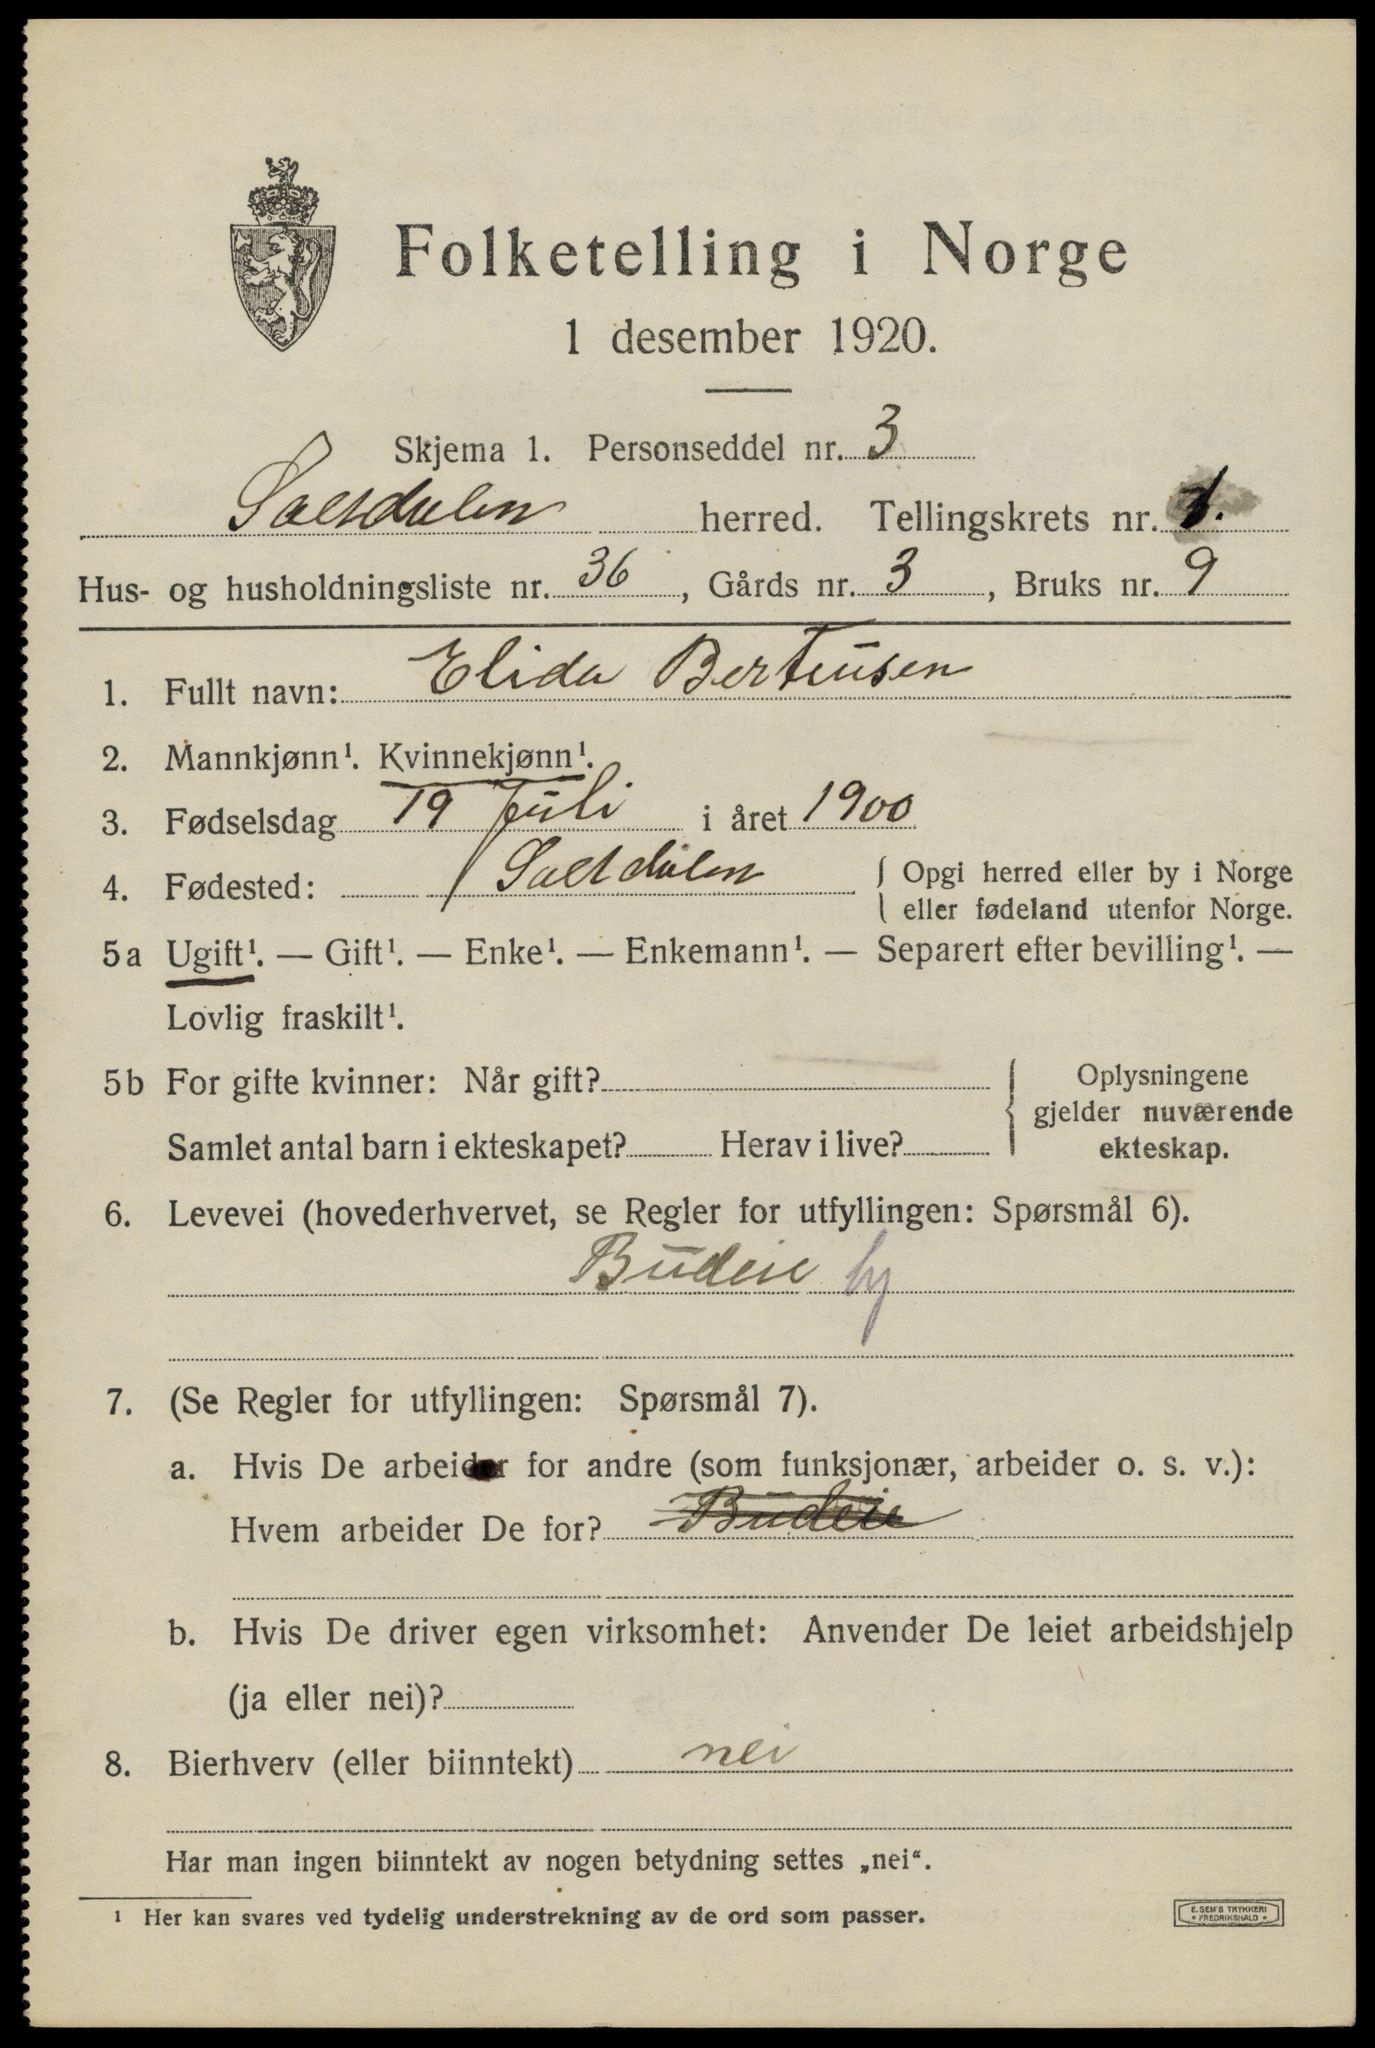 Folketelling i Norge
1 desember 1920.
Skjema 1. Personseddel nr. 3
Saltdalen herred. Tellingskrets nr. 1.
Hus- og husholdningsliste nr. 36, Gårds nr. 3, Bruks nr. 9
1. Fullt navn: Elida Berteusen
2. Mannkjønn¹. Kvinnekjønn¹.
3. Fødselsdag 19 Juli i året 1900
4. Fødested: Saltdalen { Opgi herred eller by i Norge
eller fødeland utenfor Norge.
5a Ugift¹. — Gift¹. — Enke¹. — Enkemann¹. — Separert efter bevilling¹. —
Lovlig fraskilt¹.
5b For gifte kvinner: Når gift? { Oplysningene
gjelder nuværende
Samlet antal barn i ekteskapet? Herav i live? ekteskap.
6. Levevei (hovederhvervet, se Regler for utfyllingen: Spørsmål 6).
Budeie by
7. (Se Regler for utfyllingen: Spørsmål 7).
a. Hvis De arbeider for andre (som funksjonær, arbeider o. s. v.):
Hvem arbeider De for? Budeie
b. Hvis De driver egen virksomhet: Anvender De leiet arbeidshjelp
(ja eller nei)?
8. Bierhverv (eller biinntekt) nei
Har man ingen biinntekt av nogen betydning settes „nei“.
¹ Her kan svares ved tydelig understrekning av de ord som passer.
E. SEM'S TRYKKERI
* FREDRIKSHALD *